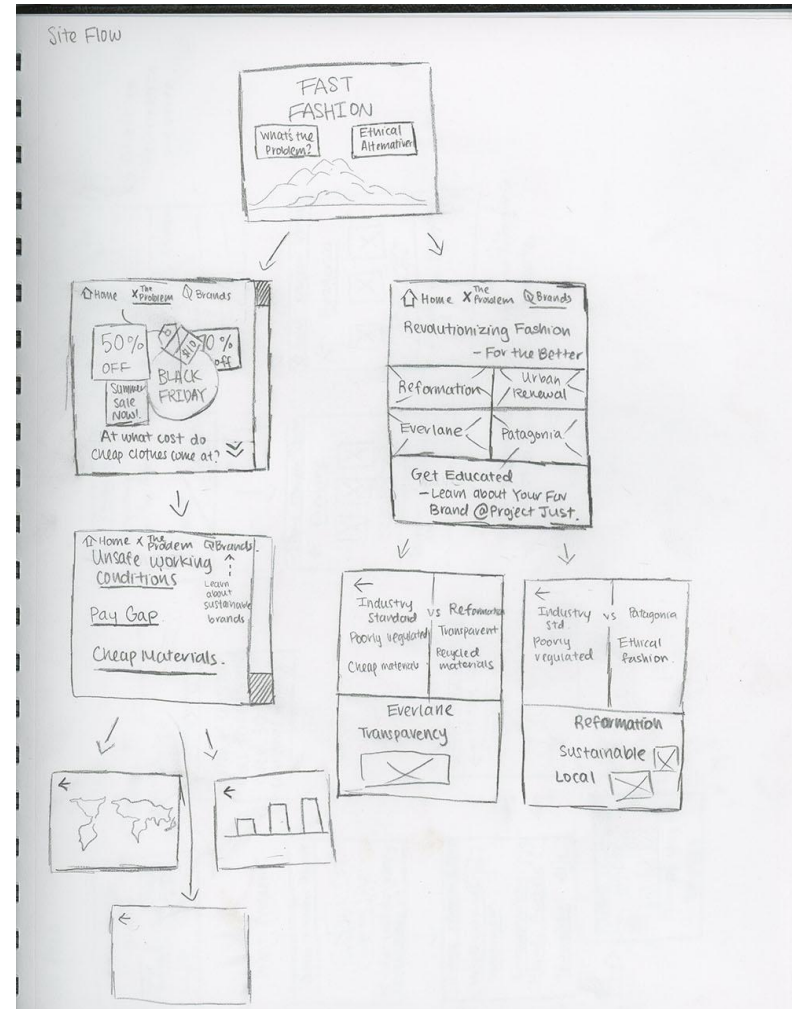 Site Flow
FAST
FASHION
What's the
Problem?
Ethical
Alternatives
Home X The Problem Brands
50%
OFF
$10
70%
off
BLACK
FRIDAY
Summer
Sale
Now!
At what cost do
cheap clothes come at?
Home X The Problem Brands
Revolutionizing Fashion
- For the Better
Reformation
Urban
Renewal
Everlane
Patagonia
Get Educated
- Learn about Your Fav
Brand @Project Just.
Home X The Problem Brands
Unsafe working
conditions
Learn
about
sustainable
brands
Pay Gap
Cheap Materials.
Industry
Standard
vs Reformation
Poorly regulated
Transparent
Cheap materials
Recycled
materials
Everlane
Transparency
Industry
Std.
vs Patagonia
Poorly
regulated
Ethical
fashion.
Reformation
Sustainable
Local